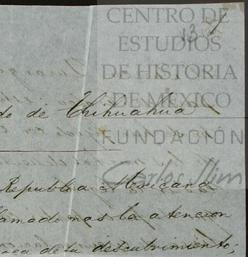 CENTRO DE
ESTUDIOS
DE HISTORIA
DE MÉXICO
FUNDACIÓN
Carlos Slim
13
do de Chihuahua
Republica Mexicana
llamado mas la atencion
de su descubrimiento,